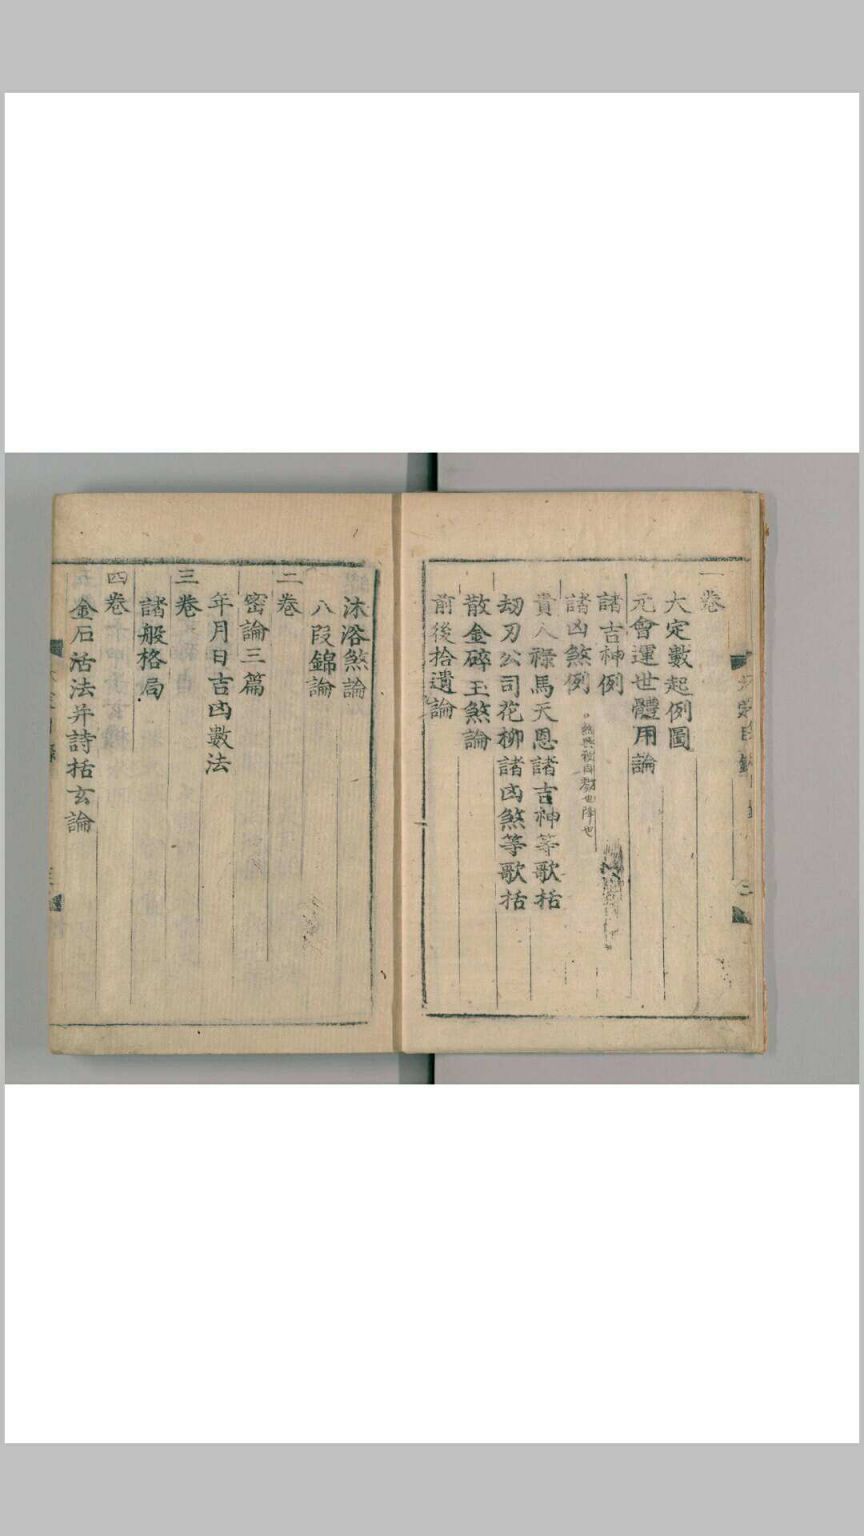 一卷
大定數起例圖
元會運世體用論
諸吉神例
諸凶煞例
貴人祿馬天恩諸吉神等歌括
刼刃公司花柳諸凶煞等歌括
散金碎玉煞論
前後拾遺論
沐浴煞論
八段錦論
二卷
密論三篇
年月日吉凶數法
三卷
諸般格局
四卷
金石活法并詩括玄論